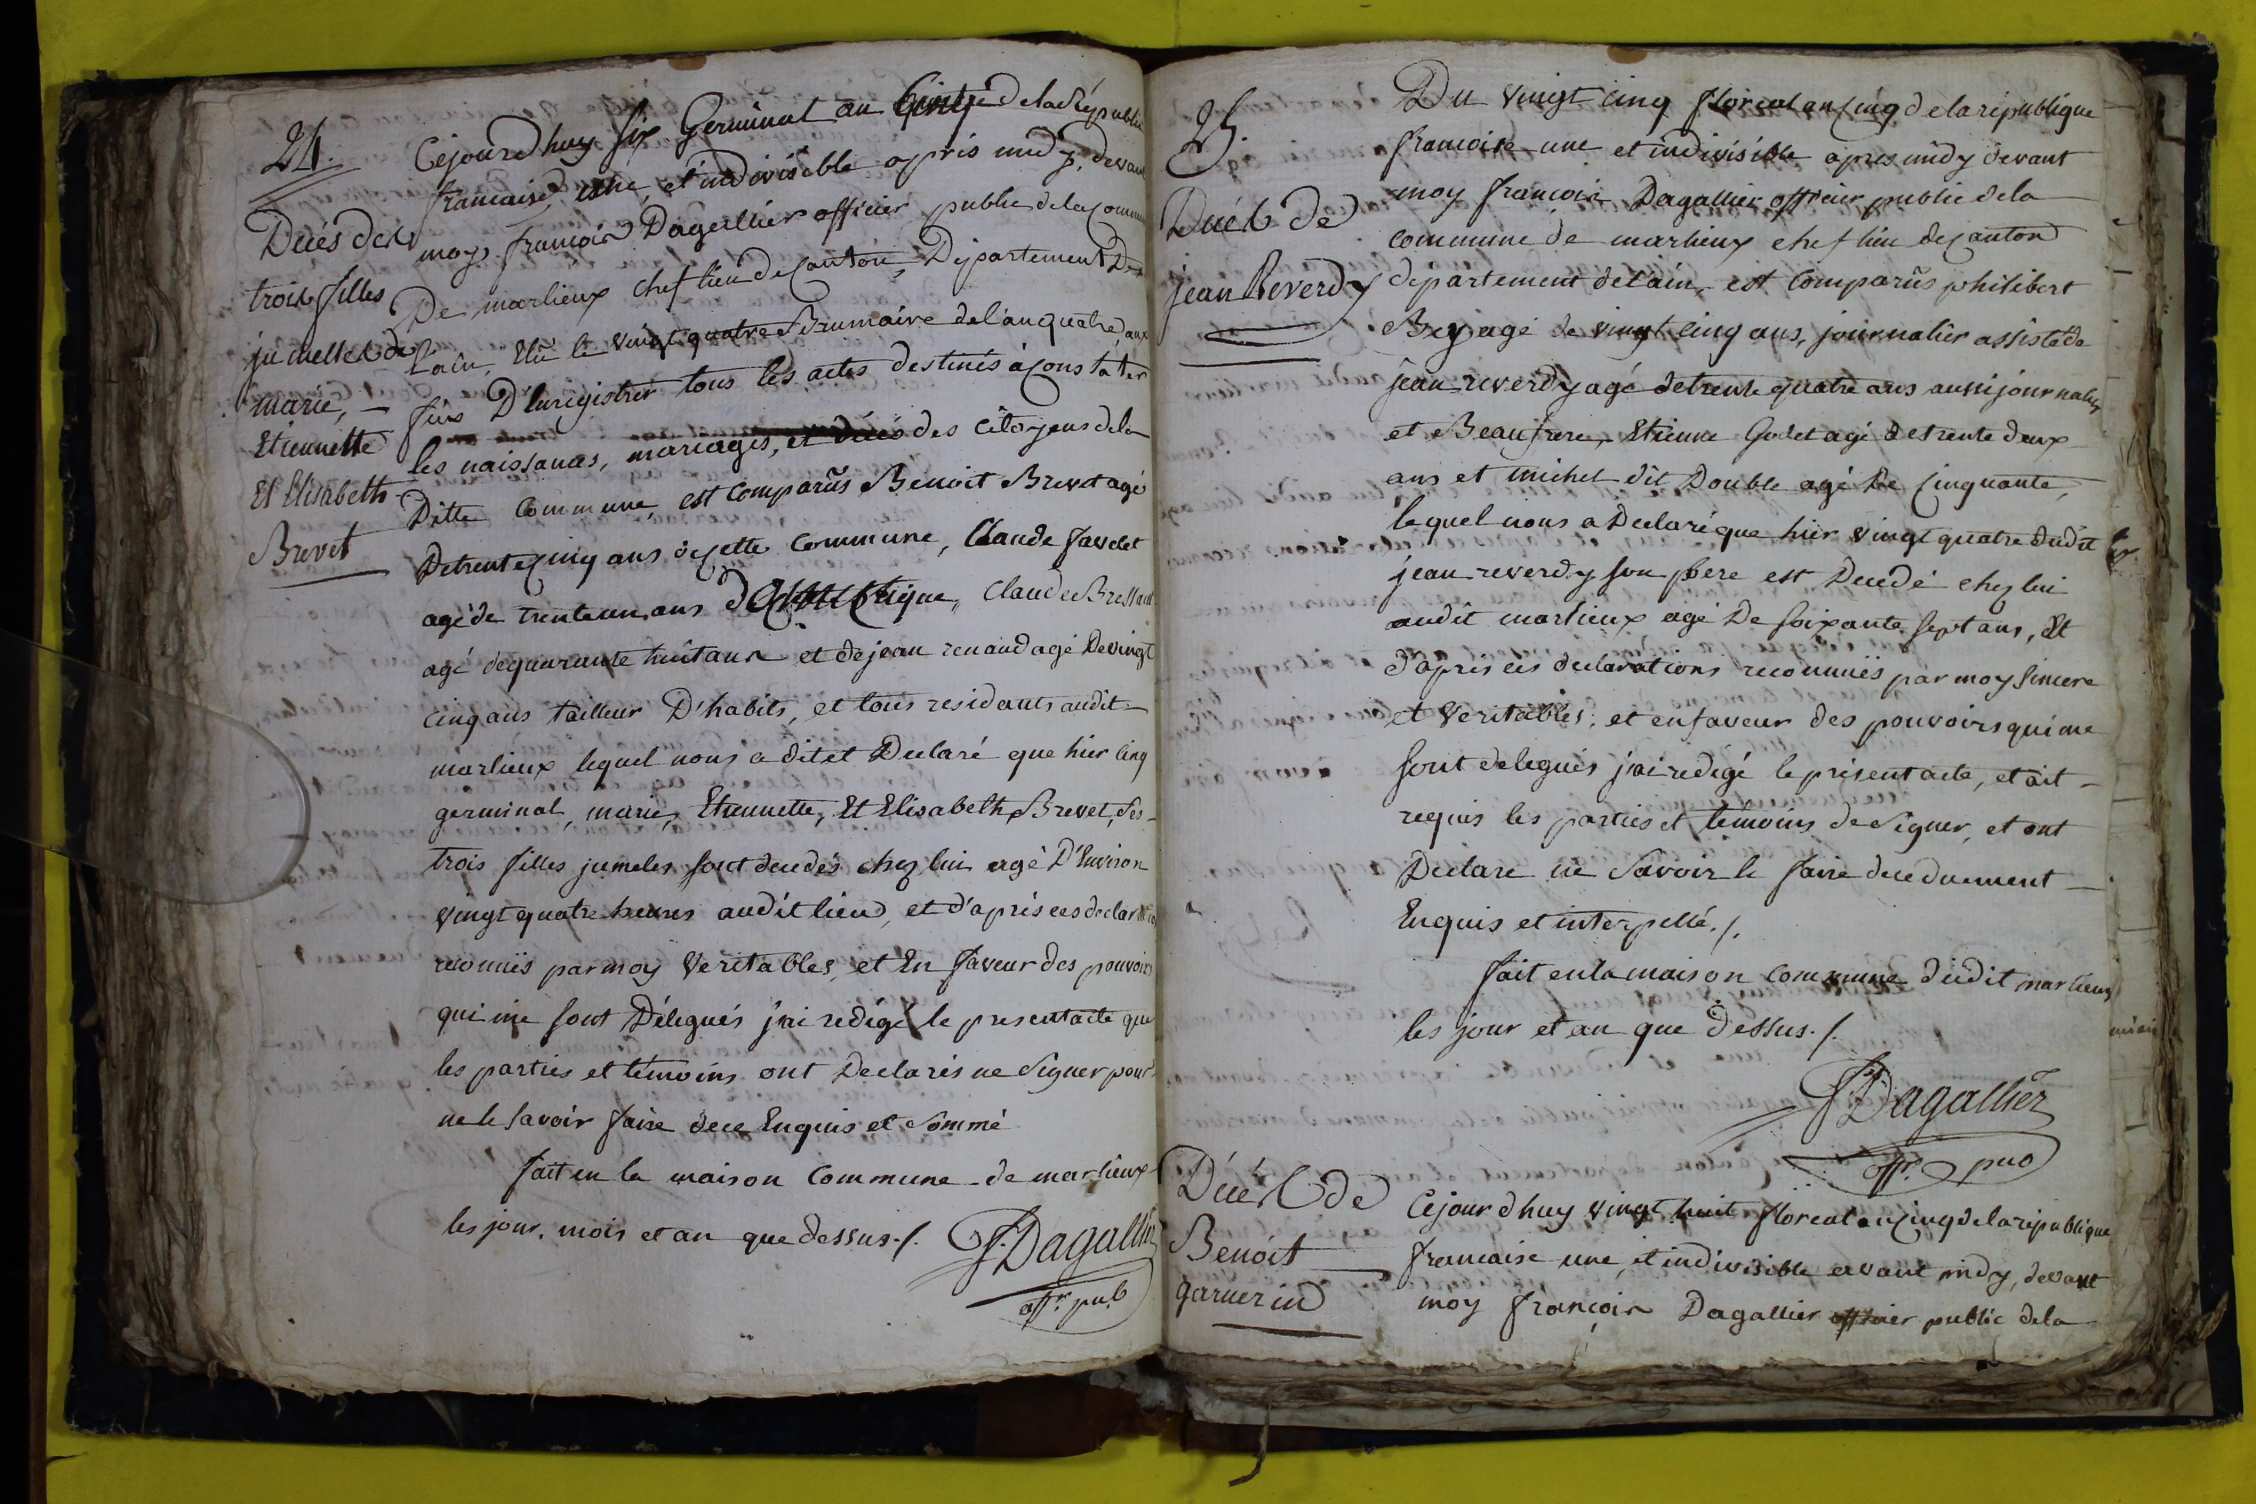 24.
Décés des
trois filles
jumelles de
marie, —
Etiennette
Et Elisabeth
Brevet
Cejourdhuy six Germinal an Cinq de la Républi
francaise, une, et indivisible apris midy, devant
moy francois Dagallier officier public de la Commu
De marlieux chef lieu de canton, Département De
L'ain, Elu le vingt quatre Brumaire de l'an quatre, aux
fins D'Enregistrer tous les actes destinés à constater
les naissances, mariages, et décès des citoyens de la
Ditte Commune, est comparûs Benoit Brevet agé
De trente cinq ans de cette Commune, Claude favelet
agé de trente un ans Claude Bressan
agé de quarante huit ans et de jean renaud agé De vingt
cinq ans tailleur D'habits, et tous residants audit
marlieux lequel nous a dit et Declaré que hier cinq
germinal, marie, Etiennette, Et Elisabeth Brevet, ses
trois filles jumeles sont decedés chez lui agé D'Environ
vingt quatre heures audit lieu, et d'aprés ces declara
reconnüs par moy Veritables, et En faveur des pouvoirs
qui me sont Délegués j'ai redigé le present acte que
les parties et témoins ont Declarés ne signer pour
ne le savoir faire de ce Enquis et Sommé
fait en la maison Commune de marlieux
les jour, mois et an que dessus ./.
F. Dagallier
offr. pub
25.
Décés de
jean Reverdy
Du vingt cinq floreal an cinq de la république
francoise une et indivisible apres midy devant
moy francois Dagallier officier public de la
commune de marlieux chef lieu de canton
departement de l'ain, est comparûs philibert
Bey agé de vingt cinq ans, journalier assisté de
jean reverdy agé de trente quatre ans aussi journalier
et Beaufrere, Etienne Godet agé de trente deux
ans et michel dit Double agé De cinquante,
lequel nous a Declaré que hier vingt quatre dudit
jean reverdy son pere est Decedé chez lui
audit marlieux agé De soixante sept ans, Et
d'apres ces declarations reconnües par moy sincere
et Veritables, et en faveur des pouvoirs qui me
sont delegués j'ai redigé le present acte, et ait
requis les parties et témoins de signer, et ont
Declare ne Savoir le faire de ce duement
Enquis et interpellé ./.
fait en la maison commune dudit marlieux
les jour et an que dessus ./.
F. Dagallier
offr. pub
Décés de
Benoit
garnerin
Cejourdhuy vingt huit floreal an cinq de la république
francaise une, et indivisible avant midy, devant
moy francois Dagallier officier public de la